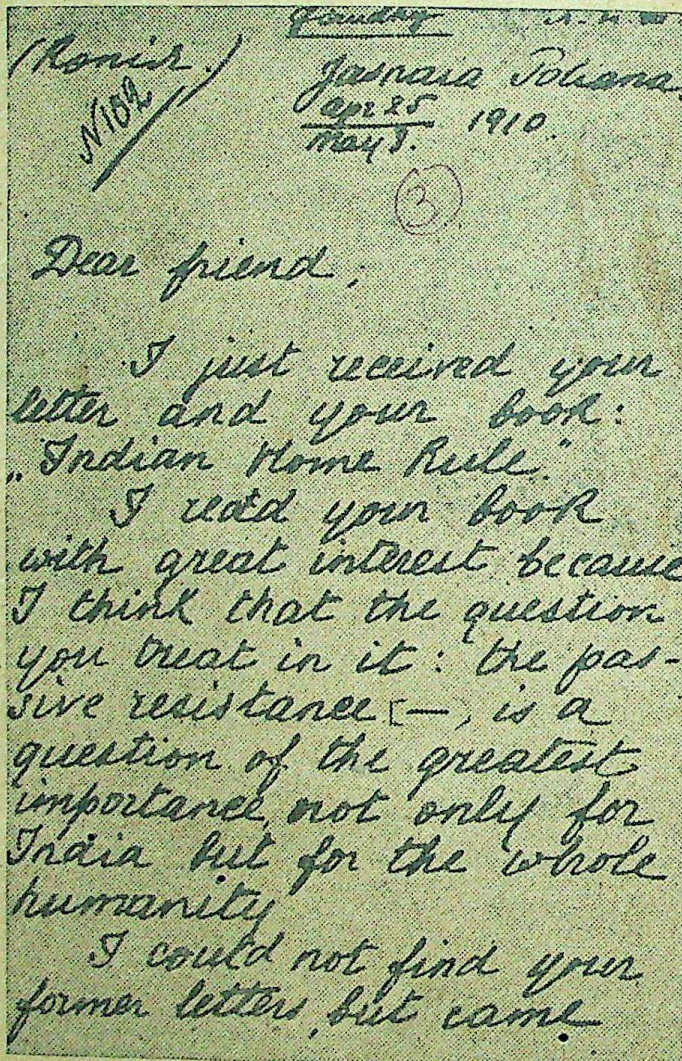 Gandhi
(Копія.)
N102
Jasnaia Poliana
Apr 25
May 8. 1910.
3
Dear friend,
I just received your
letter and your book:
„Indian Home Rule"
I read your book
with great interest because
I think that the question
you treat in it: the pas-
sive resistance [—, is a
question of the greatest
importance not only for
India but for the whole
humanity
I could not find your
former letters, but came